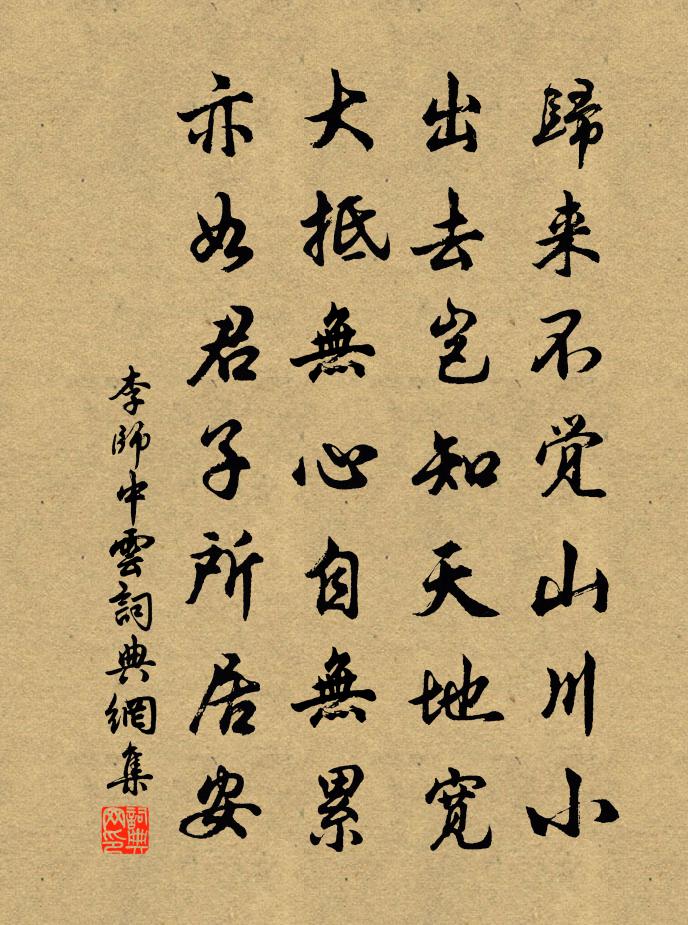 歸来不覚山川小
出去岂知天地寬
大抵無心自無累
亦如君子所居安
李師中雲詞典網集
詞典網印